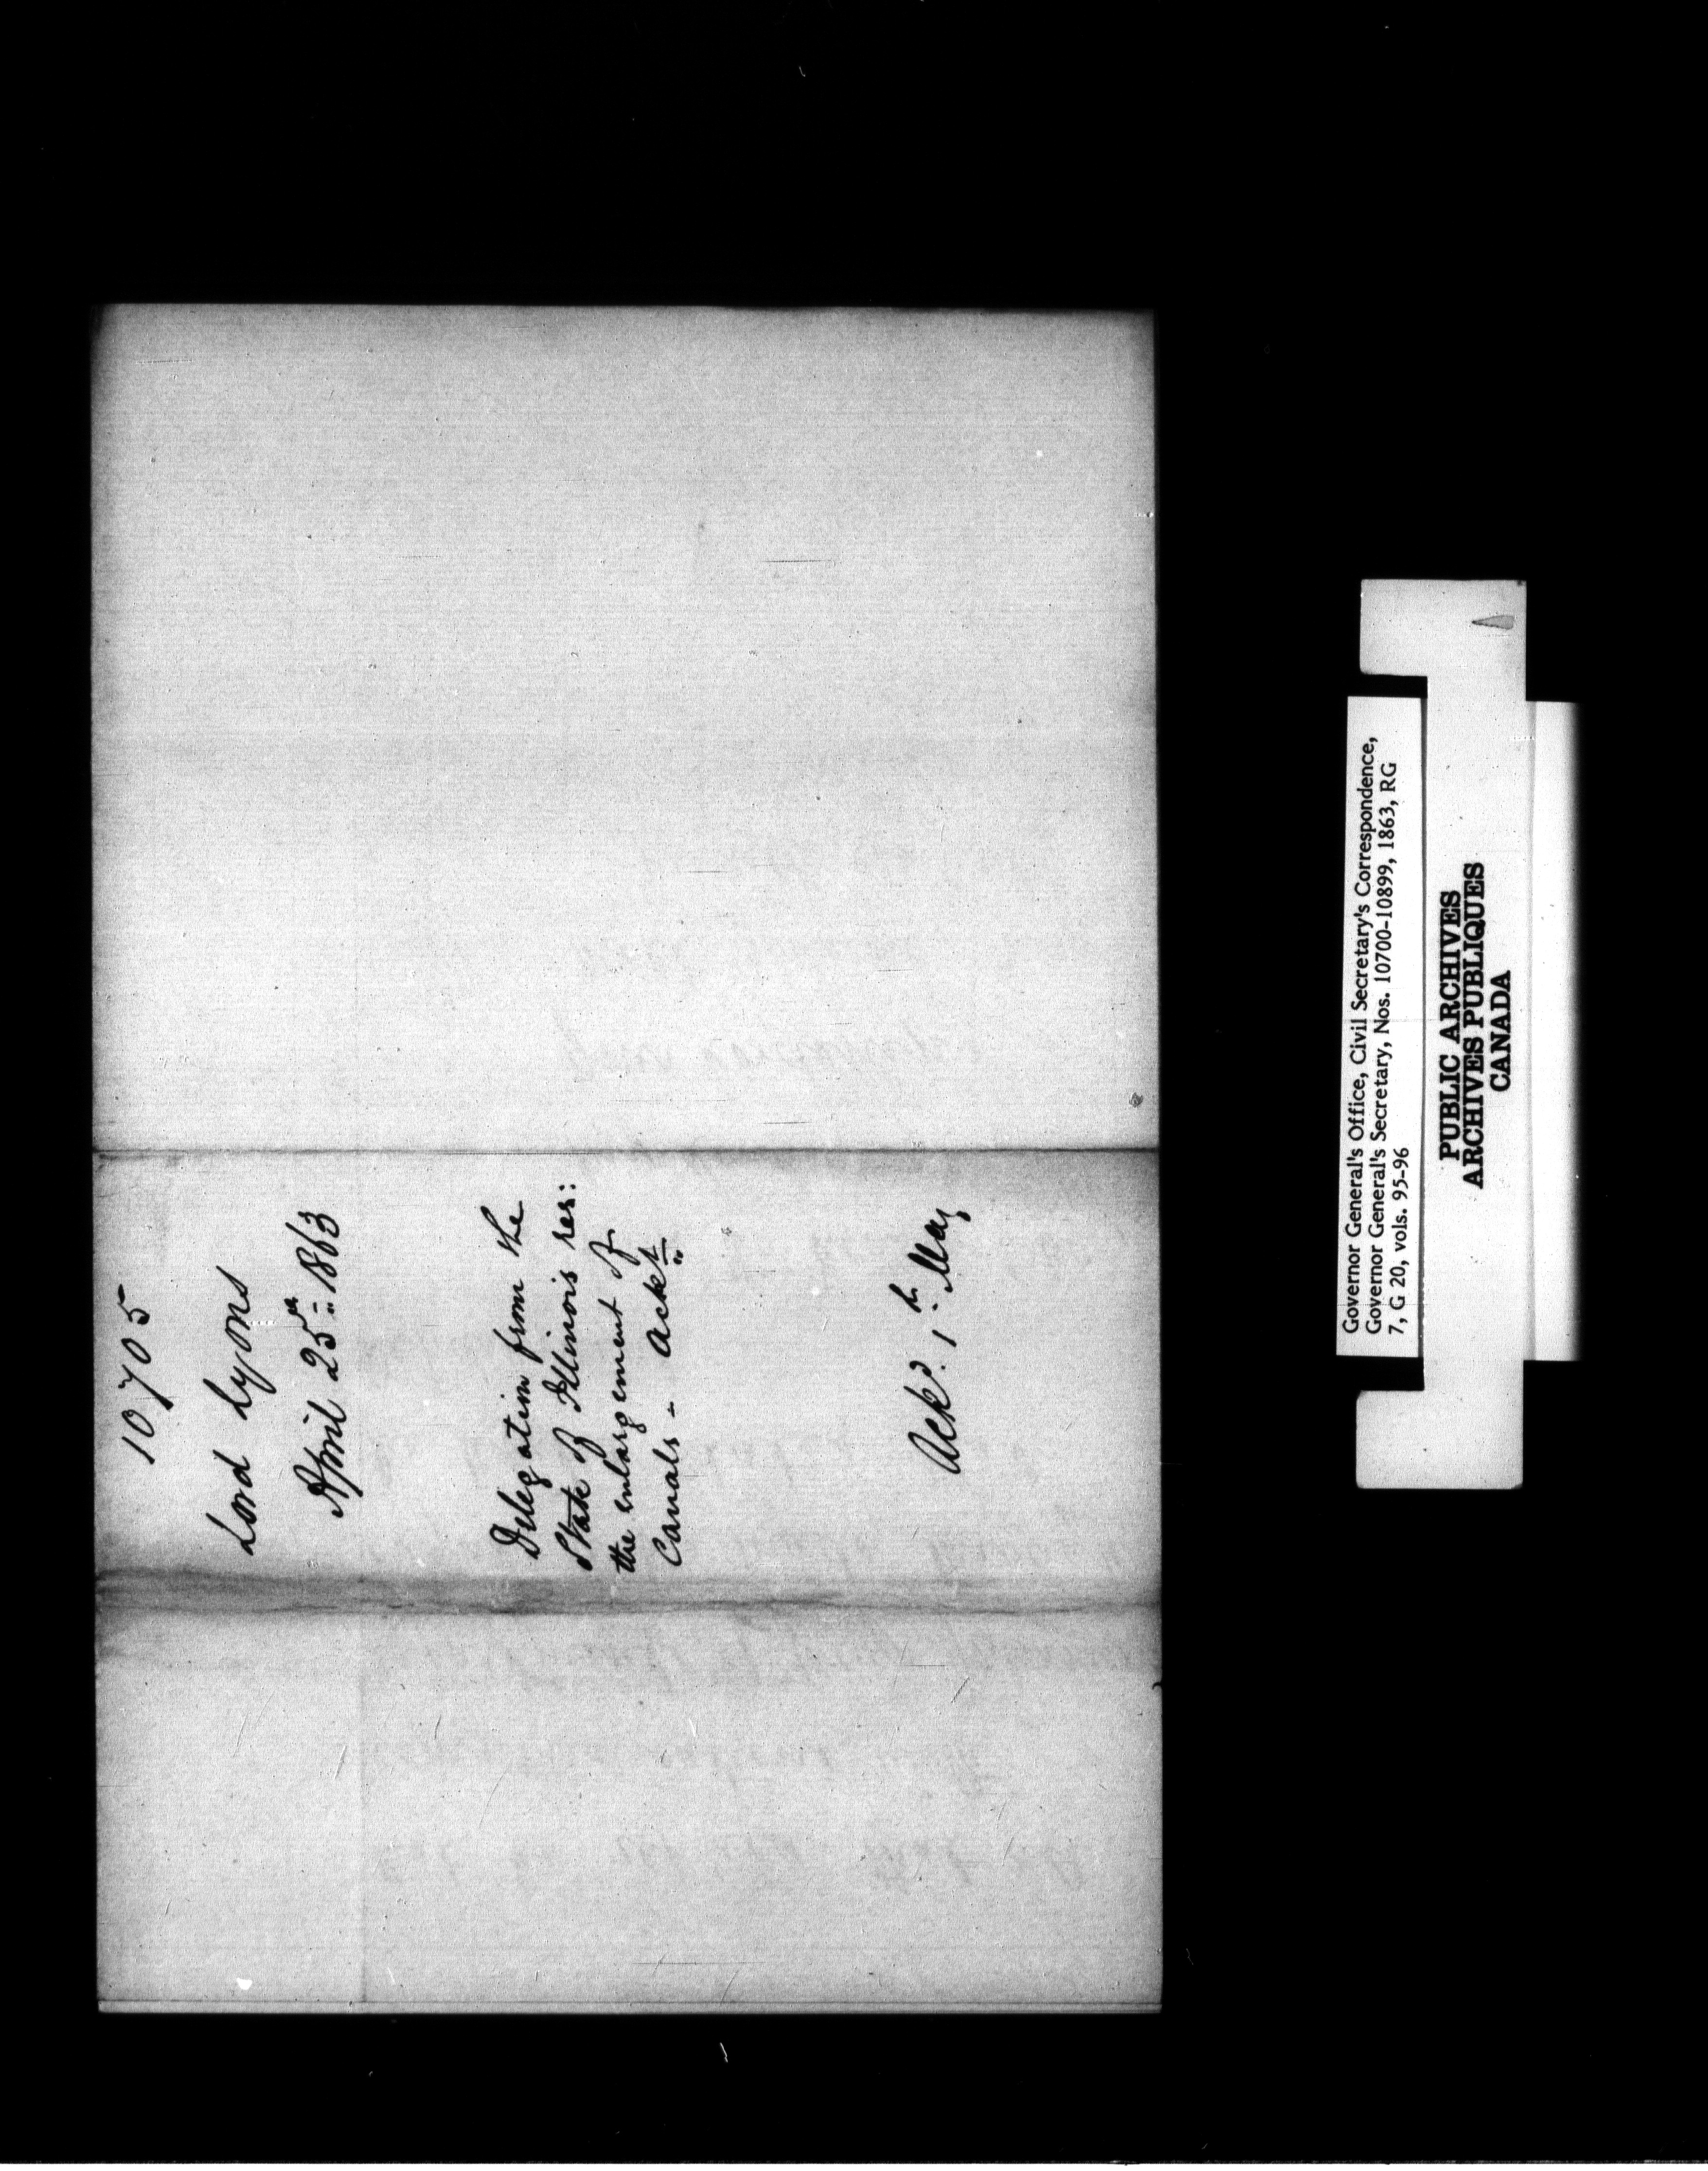 10705
Lord Lyons
April 25th 1863
Delegation from the
State of Illinois res:
the enlargement of
Canals - Ackt
Ackd. 1st May
Governor General's Office, Civil Secretary's Correspondence,
Governor General's Secretary, Nos. 10700-10899, 1863, RG
7, G 20, vols. 95-96
PUBLIC ARCHIVES
ARCHIVES PUBLIQUES
CANADA